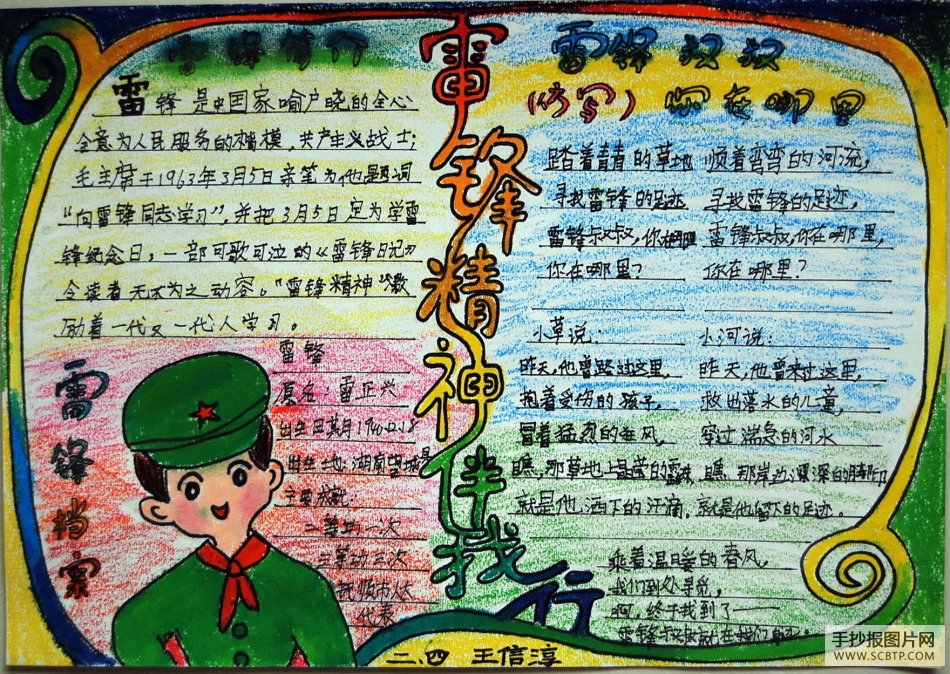 雷锋简介
雷锋是中国家喻户晓的全心
全意为人民服务的楷模，共产主义战士；
毛主席于1963年3月5日亲笔为他题词
“向雷锋同志学习”，并把3月5日定为学雷
锋纪念日，一部可歌可泣的《雷锋日记》
令读者无不为之动容。“雷锋精神”激
励着一代又一代人学习。
雷锋档案
雷锋
原名：雷正兴
出生日期1940.12.18
出生地：湖南望城县
二等功一次
三等功三次
代表
雷锋精神伴我行
雷锋叔叔
(仿写) 你在哪里
踏着青青的草地
寻找雷锋的足迹
雷锋叔叔，你在哪里
你在哪里？
小草说：
昨天，他曾路过这里，
抱着受伤的孩子，
冒着猛烈的狂风，
瞧，那草地上晶莹的露珠，
就是他洒下的汗滴，
顺着弯弯的河流，
寻找雷锋的足迹，
雷锋叔叔，你在哪里，
你在哪里？
小河说：
昨天，他曾来过这里，
救出落水的儿童，
穿过湍急的河水
瞧，那岸边深深的脚印
就是他留下的足迹。
乘着温暖的春风，
我们到处寻觅，
啊，终于找到了——
二、四 王信淳
手抄报图片网
WWW.SCBTP.COM